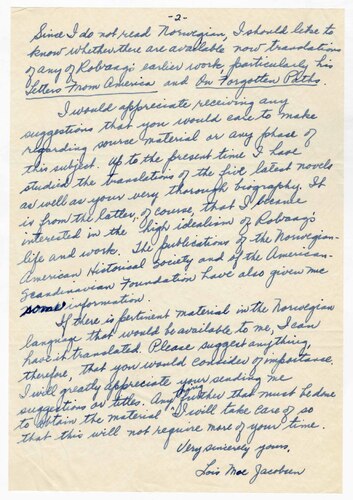 -2-
Since I do not read Norwegian, I should like to
know whether there are available now translations
of any of Rolvaag's earlier work, particularly his
Letters From America and On Forgotten Paths.
I would appreciate receiving any
suggestions that you would care to make
regarding source material or any phase of
this subject. Up to the present time I have
studied the translations of the five latest novels
as well as your very thorough biography. It
is from the latter, of course, that I became
interested in the high idealism of Rolvaag's
life and work. The publications of the Norwegian-
American Historical Society and of the American-
Scandinavian Foundation have also given me
some information.
If there is pertinent material in the Norwegian
language that would be available to me, I can
have it translated. Please suggest anything,
therefore, that you would consider of importance.
I will greatly appreciate your sending me
suggestions or titles. Anything further that must be done
to obtain the material I will take care of so
that this will not require more of your time.
Very sincerely yours,
Lois Moe Jacobsen